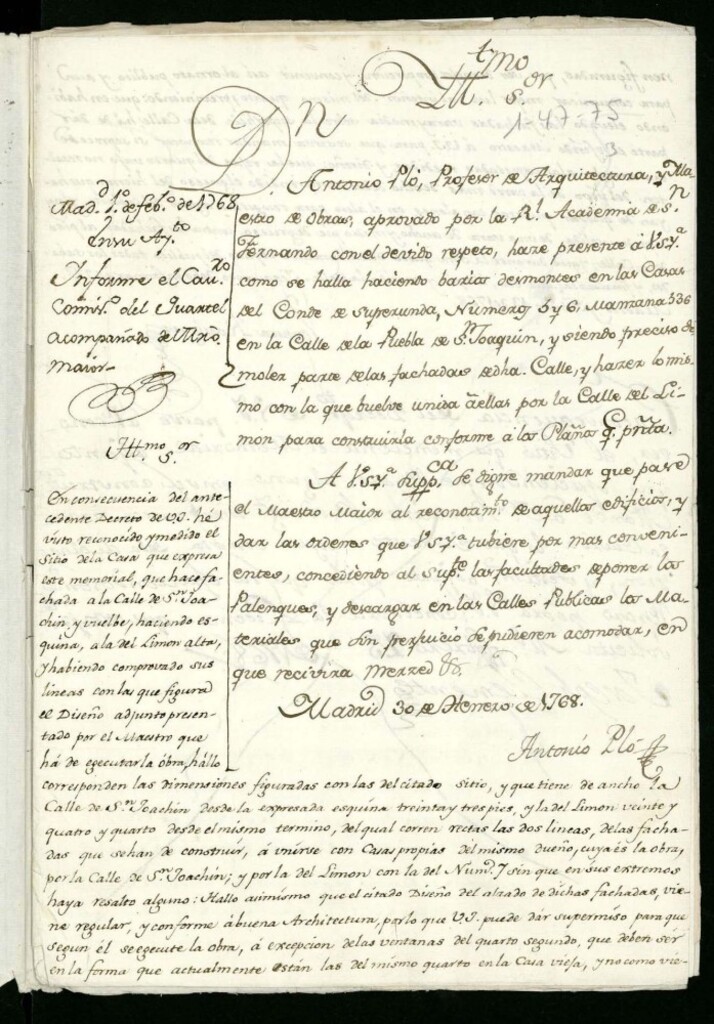 Yllmo. Sor.
1-47-75
3
Dn
Antonio Pló, Profesor de Arquitectura, y Ma-
estro de Obras, aprovado por la Rl. Academia de Sn.
Fernando con el devido respeto, haze presente á V.S.Ya.
como se halla haciendo barios desmontes en las Casas
del Conde de Superunda, Numeros 5 y 6, Manzana 536
en la Calle de la Puebla de Sn. Joaquin, y siendo preciso de-
moler parte de las fachadas de dha. Calle, y hazer lo mis-
mo con la que buelve unida á ellas por la Calle del Li-
mon para construirla conforme á los Plañōs q. prñta.
A V.S.Ya. Suppca. Se digne mandar que pase
el Maestro Maior al reconozimto. de aquellos edificios, y
dar las ordenes que V.S.Ya. tubiere por mas conveni-
entes, concediendo al Supte. las facultades de poner los
Palenques, y descargar en las Calles Publicas los Ma-
teriales que sin perjuicio se pudieren acomodar, en
que recivira Merzed &.
Madrid 30 de Henero de 1768.
Antonio Pló
Madd. 1o. de Febo. de 1768
En su Ayto.
Informe el Cavro.
Comiso. del Quartel
acompañado del Mro.
maior
Yllmo. Sor.
En consecuencia del ante-
cedente Decreto de V.I. hé
visto reconocido y medido el
Sitio de la Casa que expresa
este memorial, que hace fa-
chada a la Calle de Sn. Joa-
chin, y vuelbe, haciendo es-
quina, a la del Limon alta,
y habiendo comprovado sus
lineas con las que figura
el Diseño adjunto presen-
tado por el Maestro que
há de egecutar la obra, hállo
corresponden las dimensiones figuradas con las del citado sitio, y que tiene de ancho la
Calle de Sn. Joachin desde la expresada esquina treinta y tres pies, y la del Limon veinte y
quatro y quarto desde el mismo termino, del qual corren rectas las dos lineas, de las facha-
das que se han de construir, á vnirse con Casas propias del mismo dueño, cuya és la obra,
por la Calle de Sn. Joachin; y por la del Limon con la del Numo. 7 sin que en sus extremos
haya resalto alguno: Hallo asimismo que el citado Diseño del alzado de dichas fachadas, vie-
ne regular, y conforme á buena Architectura, por lo que V.I. puede dár su permiso para que
segun él se egecute la obra, á excepcion de las ventanas del quarto segundo, que deben sér
en la forma que actualmente están las del mismo quarto en la Casa vieja, y no como vie-